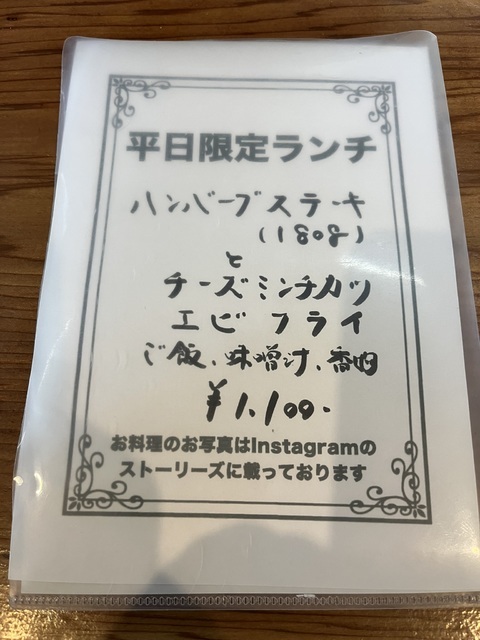 平日限定ランチ
ハンバーグステーキ
(180g)
と
チーズミンチカツ
エビフライ
ご飯、味噌汁、香物
¥1,100-
お料理のお写真はInstagramの
ストーリーズに載っております